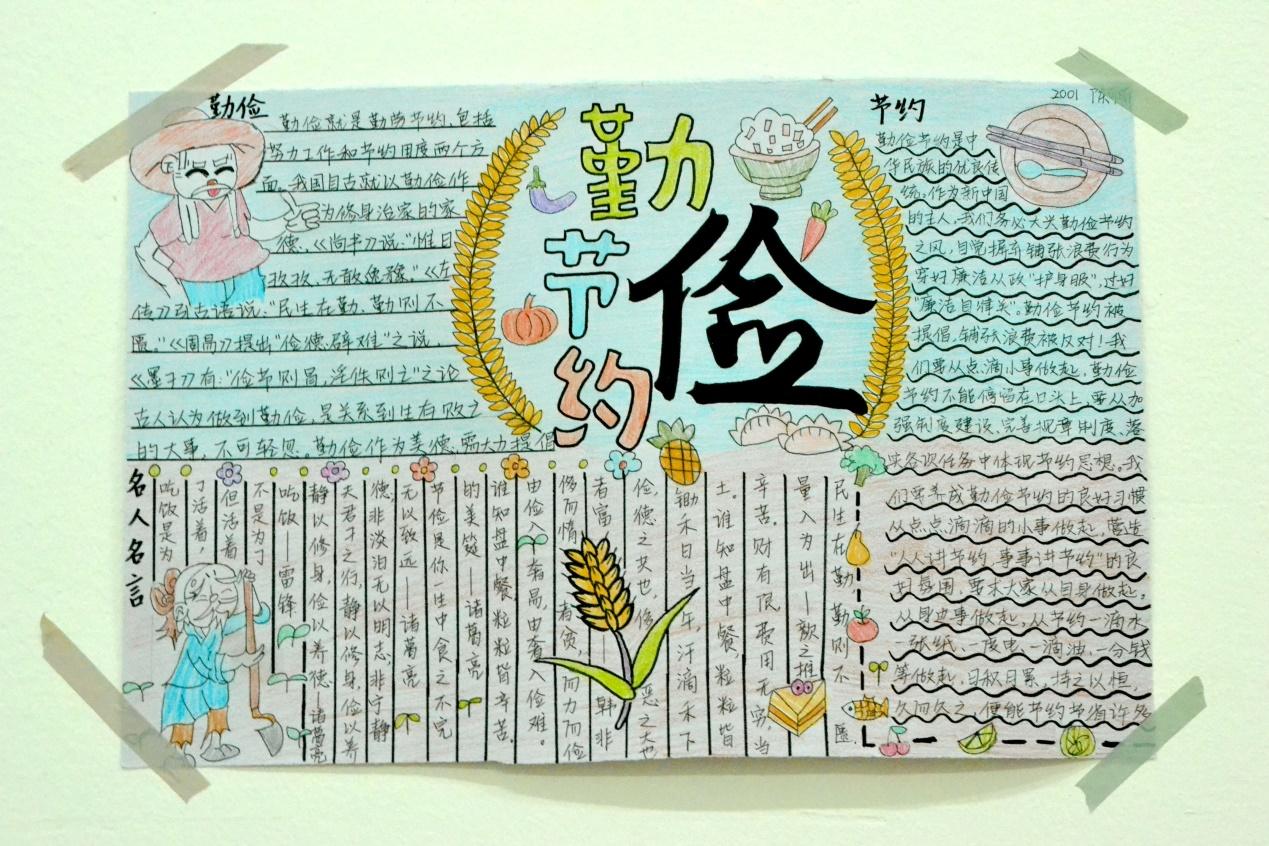 勤俭
勤俭就是勤劳节约,包括
努力工作和节约用度两个方
面。我国自古就以勤俭作
为修身治家的家
德,《尚书》说:“惟日
孜孜,无敢逸豫。”《左
传》引古语说:“民生在勤,勤则不
匮。”《周易》提出“俭德辟难”之说,
《墨子》有:“俭节则昌,淫佚则亡”之论
古人认为做到勤俭,是关系到生存败亡
的大事,不可轻忽。勤俭作为美德,需大力提倡
勤
俭
节
约
2001
节约
勤俭节约是中
华民族的优良传
统,作为新中国
的主人,我们务必大兴勤俭节约
之风,自觉摒弃铺张浪费行为
穿好廉洁从政“护身服”,过好
“廉洁自律关”。勤俭节约被
提倡,铺张浪费被反对!我
们要从点滴小事做起,勤俭
节约不能停留在口头上,要从加
强制度建设、完善规章制度、落
实各项任务中体现节约思想。我
们要养成勤俭节约的良好习惯
从点点滴滴的小事做起,营造
“人人讲节约,事事讲节约”的良
好氛围,要求大家从自身做起,
从身边事做起,从节约一滴水
一张纸、一度电、一滴油、一分钱
等做起,日积日累,持之以恒,
久而久之,便能节约节省许多
民生在勤 勤则不匮.
量入为出—款之推
辛苦。财有限,费用无穷,当
土。谁知盘中餐,粒粒皆
锄禾日当午,汗滴禾下
俭,德之共也,侈,恶之大也
者富
侈而惰者贫,而力而俭
韩非
由俭入奢易,由奢入俭难。
谁知盘中餐 粒粒皆辛苦.
的美筵——诸葛亮
节俭是你一生中食之不完
无以致远——诸葛亮
德,非淡泊无以明志,非宁静
夫君子之行,静以修身,俭以养
静以修身,俭以养德—诸葛亮
吃饭——雷锋
不是为了
但活着
了活着,
吃饭是为
名人名言